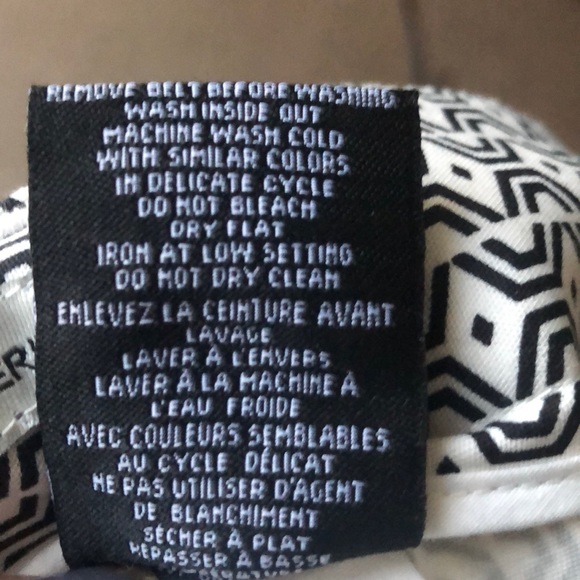 REMOVE BELT BEFORE WASHING
WASH INSIDE OUT
MACHINE WASH COLD
WITH SIMILAR COLORS
IN DELICATE CYCLE
DO NOT BLEACH
DRY FLAT
IRON AT LOW SETTING
DO NOT DRY CLEAN
ENLEVEZ LA CEINTURE AVANT
LAVAGE
LAVER À L'ENVERS
LAVER À LA MACHINE À
L'EAU FROIDE
AVEC COULEURS SEMBLABLES
AU CYCLE DÉLICAT
NE PAS UTILISER D'AGENT
DE BLANCHIMENT
SÉCHER À PLAT
REPASSER À BASSE